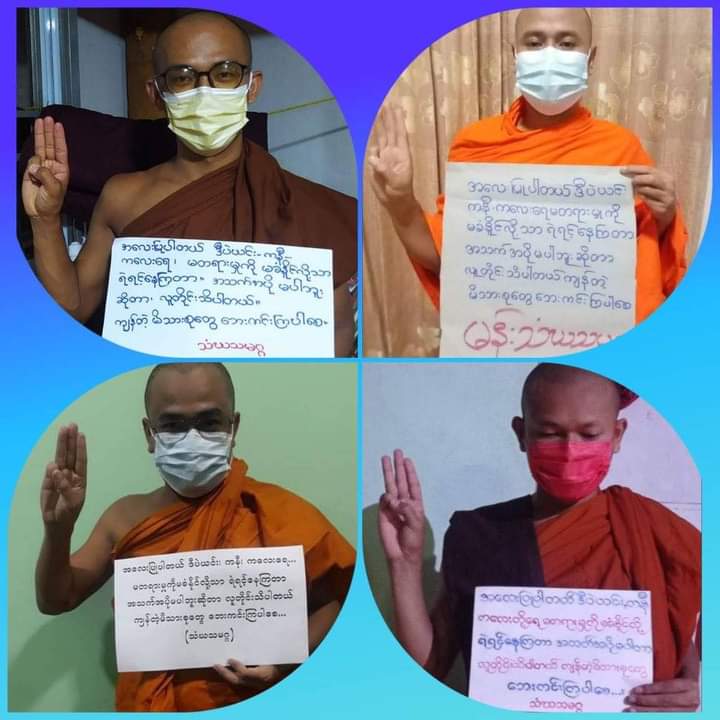 အလေးပြုပါတယ် ဒီပဲယင်း၊ ကနီ
ကလေးရေ၊ မတရားမှုကို မခံနိုင်လို့သာ
ရဲရင့်နေကြတာ။ အသက်အပို မပါဘူး
ဆိုတာ၊ လူတိုင်းသိပါတယ်။
ကျန်တဲ့ မိသားစုတွေ ဘေးကင်းကြပါစေ။
သံဃသမဂ္ဂ
အလေးပြုပါတယ် ဒီပဲယင်း
ကနီ၊ ကလေးရေမတရားမှုကို
မခံနိုင်လို့သာ ရဲရင့်နေကြတာ
အသက်အပိုမပါဘူးဆိုတာ
လူတိုင်းသိပါတယ်ကျန်တဲ့
မိသားစုတွေ ဘေးကင်းကြပါစေ
မန်းသံဃသမ
အလေးပြုပါတယ် ဒီပဲယင်း၊ ကနီ၊ ကလေးရေ...
မတရားမှုကိုမခံနိုင်လို့သာ ရဲရင့်နေကြတာ
အသက်အပိုမပါဘူးဆိုတာ လူတိုင်းသိပါတယ်
ကျန်တဲ့မိသားစုတွေ ဘေးကင်းကြပါစေ...
(သံဃသမဂ္ဂ)
အလေးပြုပါတယ် ဒီပဲယင်း၊ ကနီ
မတရားမှုကိုမခံနိုင်လို့
ရဲရင့်နေကြတာ အသက်အပိုမပါတာ
လူတိုင်းသိပါတယ် ကျန်တဲ့မိသားစုတွေ
ဘေးကင်းကြပါစေ...။
သံဃသမဂ္ဂ